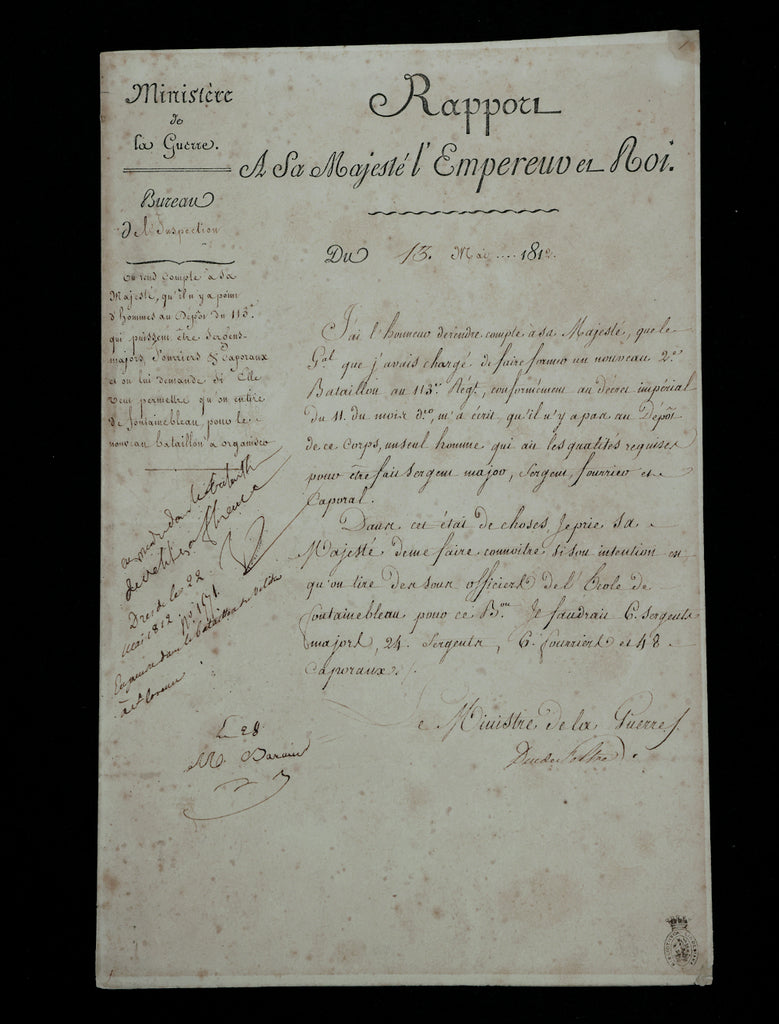 Ministère
de
la Guerre.
Bureau
de l'Inspection
On rend compte à Sa
Majesté, qu'il n'y a point
d'hommes au Dépôt du 113.e
qui puissent être Sergens-
majors, Fourriers & Caporaux
et on lui demande si Elle
veut permettre qu'on en tire
de fontainebleau pour le
nouveau bataillon à organiser
Rapport
A Sa Majesté l'Empereur et Roi.
Du 13. Mai .... 1812.
J'ai l'honneur de rendre compte à sa Majesté, que le
G.al que j'avais chargé de faire former un nouveau 2.e
Bataillon au 113.e Régt, conformément au décret impérial
du 11. du mois d.o, m'a écrit qu'il n'y a pas au Dépôt
de ce Corps, un seul homme qui ait les qualités requises
pour être fait Sergent major, Sergent, fourrier et
Caporal.
Dans cet état de choses, Je prie sa
Majesté de me faire connoitre, si son intention est
qu'on tire des sous officiers de l'École de
fontainebleau pour ce B.on Il faudrait 6. Sergents
majors, 24. Sergents, 6. fourriers et 48
Caporaux./.
Le Ministre de la Guerre
Duc de Feltre.
Dresde le 22
Mai 1812.
Le 28
M.